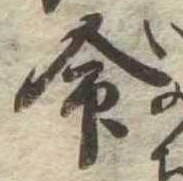 命
いのち